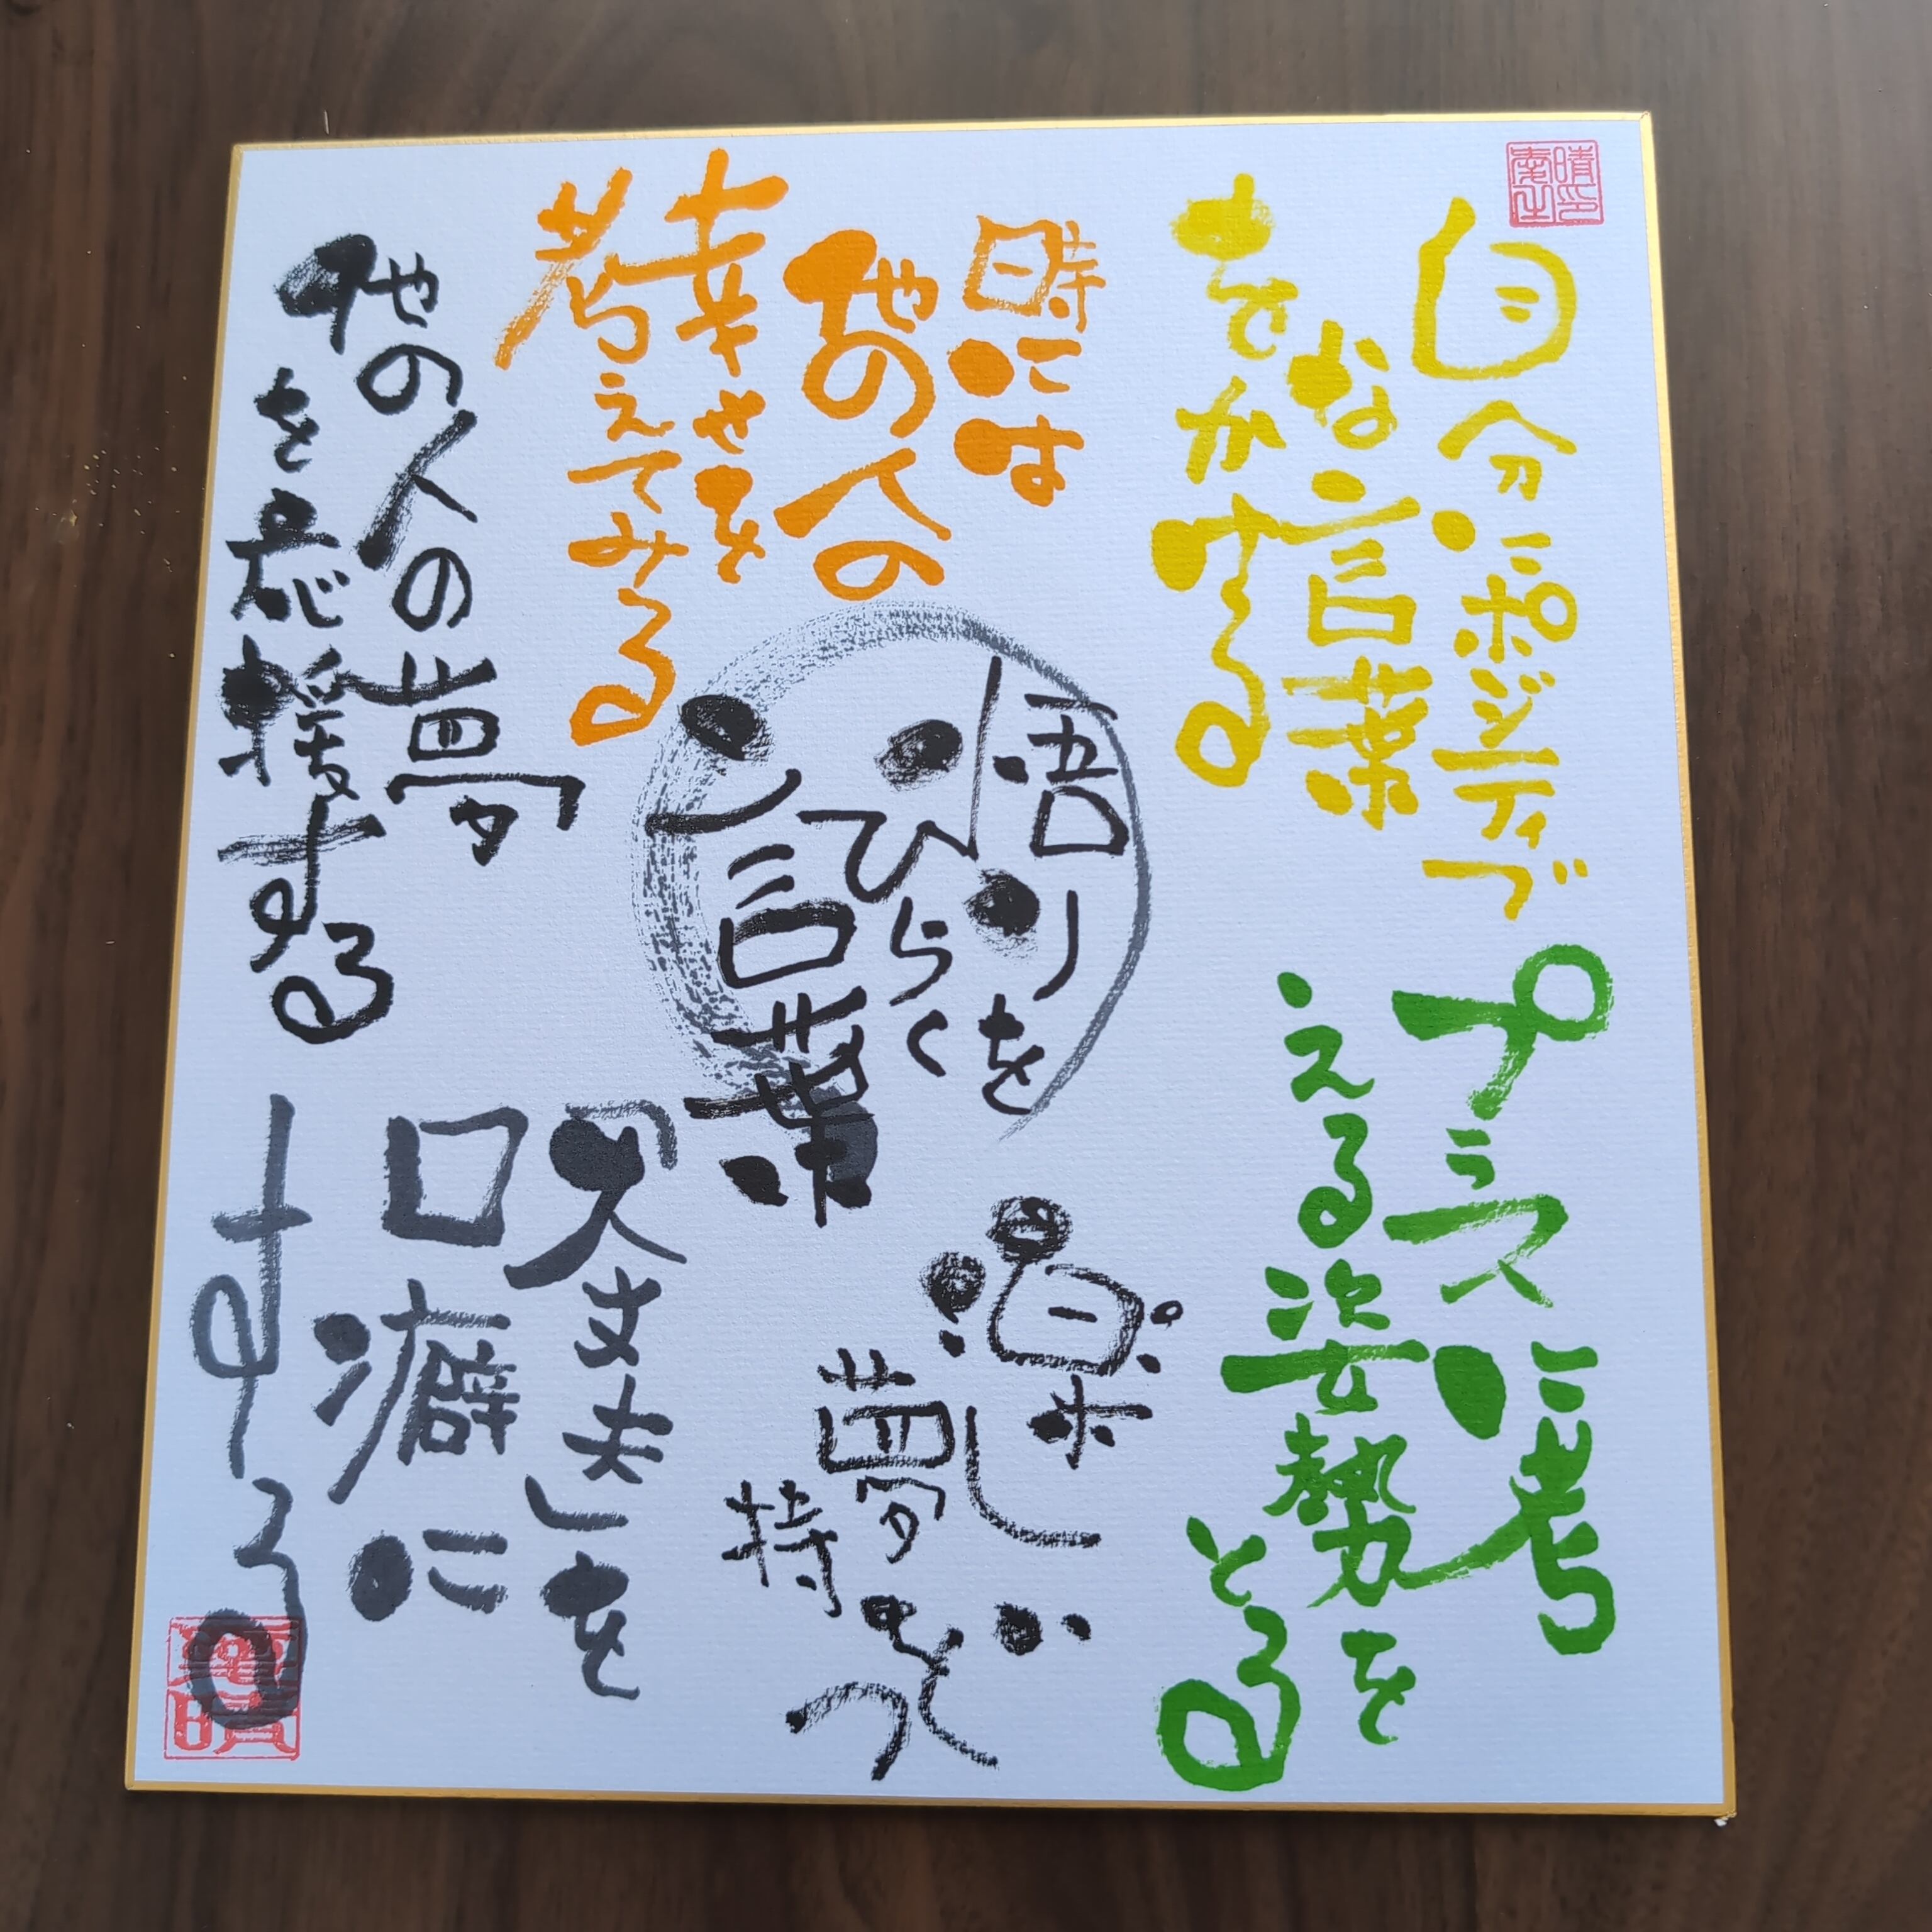 自分にポジティブ
な言葉
をかける
プラスに考
える姿勢を
とる
時には
他の人の
幸せを
考えてみる
悟りを
ひらく
言葉
楽しい
夢を
持つ
他の人の夢
を応援する
「大丈夫」を
口癖に
する